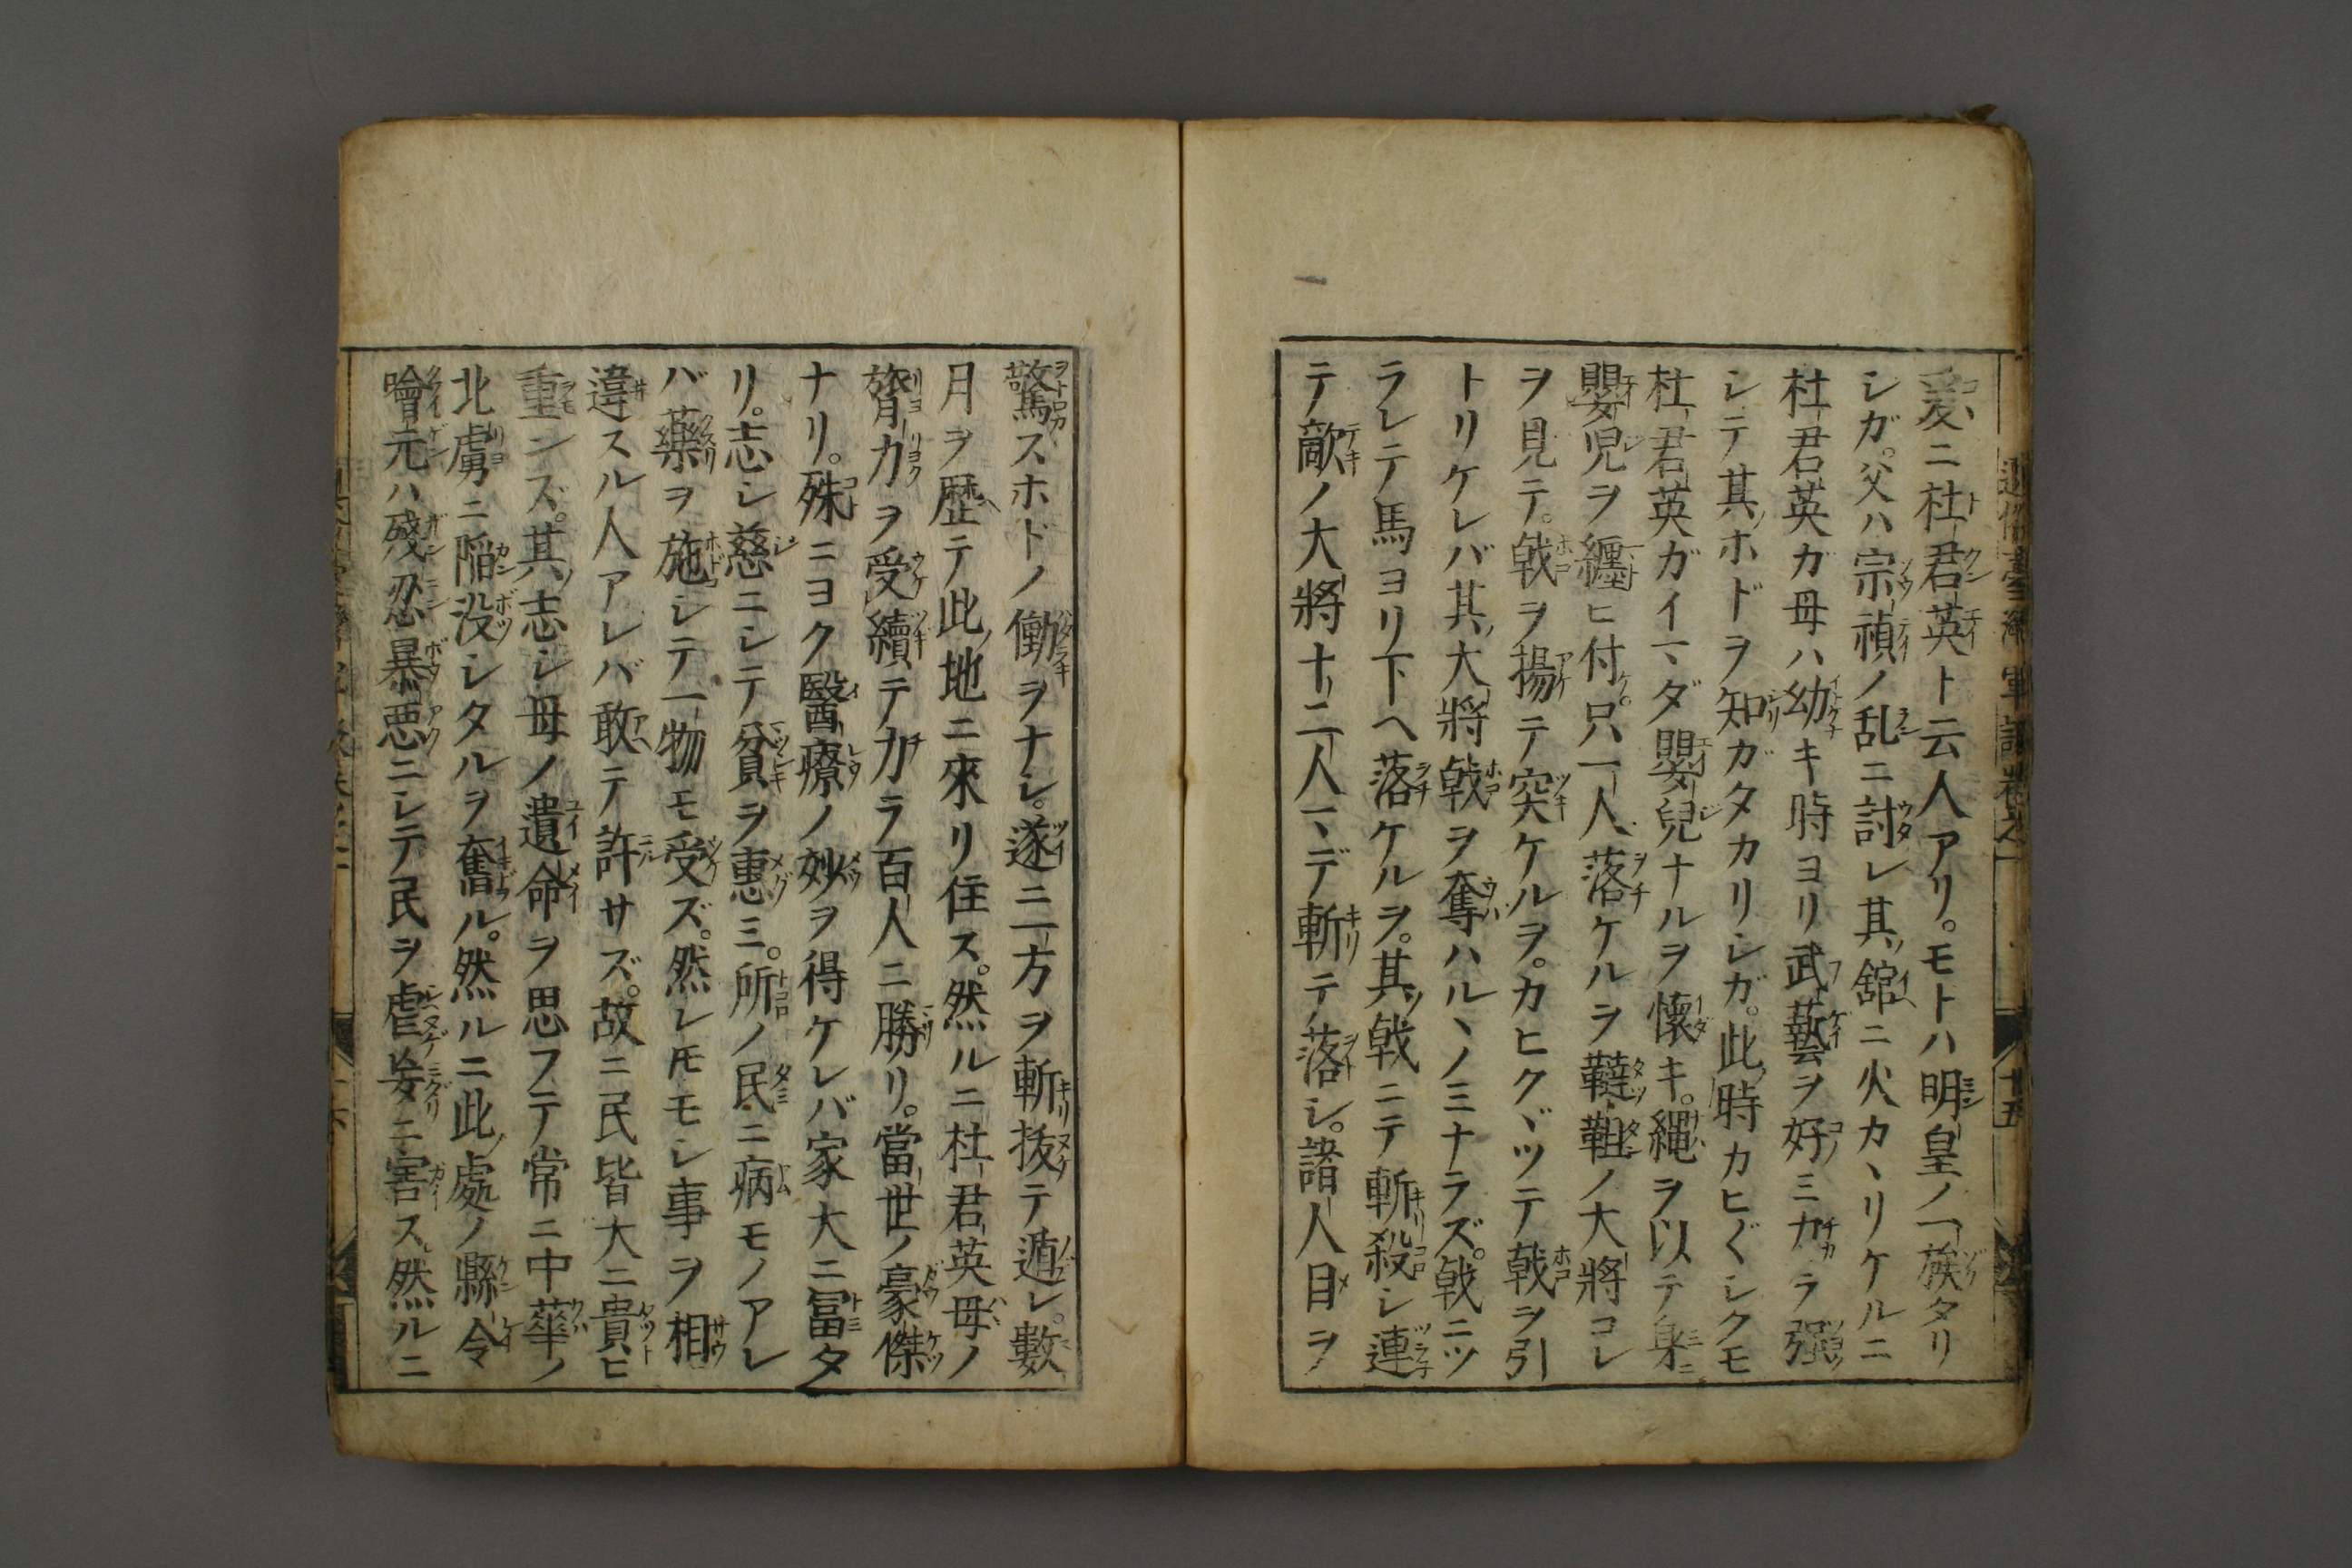 爰ニ杜君英ト云人アリ。モトハ明皇ノ一族タリ
シガ。父ハ宗禎ノ乱ニ討レ其舘ニ火カヽリケルニ
杜君英ガ母ハ幼キ時ヨリ武藝ヲ好ミ力ラ強
シテ其ホドヲ知ガタカリシガ。此時カヒ〴〵シクモ
杜君英ガイマダ嬰兒ナルヲ懐キ。縄ヲ以テ身ニ
嬰児ヲ纏ヒ付ケ。只一人落ケルヲ韃靼ノ大將コレ
ヲ見テ。戟ヲ揚テ突ケルヲ。カヒクヾツテ戟ヲ引
トリケレバ其大將戟ヲ奪ハルヽノミナラズ。戟ニツ
ラレテ馬ヨリ下ヘ落ケルヲ。其戟ニテ斬殺シ連
テ敵ノ大將十二人マデ斬テ落シ。諸人目ヲ
十五
驚スホドノ働ヲナシ。遂ニ一方ヲ斬抜テ遁レ。數
月ヲ歴テ此地ニ來リ住ス。然ルニ杜君英母ノ
膂力ヲ受續テ力ラ百人ニ勝リ。當世ノ豪傑
ナリ。殊ニヨク醫療ノ妙ヲ得ケレバ家大ニ冨タ
リ。志シ慈ニシテ貧ヲ惠ミ。所ノ民ニ病モノアレ
バ藥ヲ施シテ一物モ受ズ。然レ𪜈モシ事ヲ相
違スル人アレバ敢テ許サズ。故ニ民皆大ニ貴ヒ
重ンズ。其志シ母ノ遺命ヲ思フテ常ニ中華ノ
北虜ニ陥没シタルヲ奮ル。然ルニ此處ノ縣令
噲元ハ殘忍暴惡ニシテ民ヲ虐妄ニ害ス。然ルニ